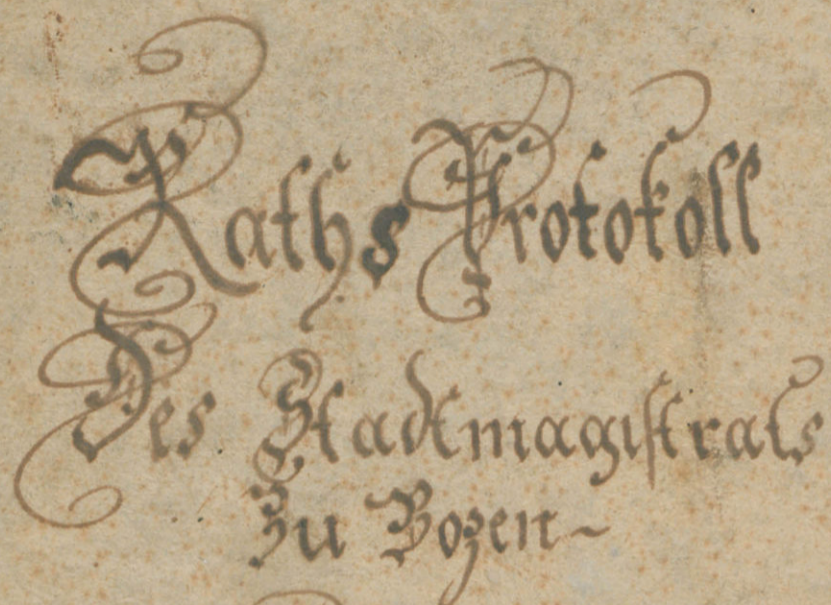 Raths Protokoll
Des Stadtmagistrats
Zu Bozen